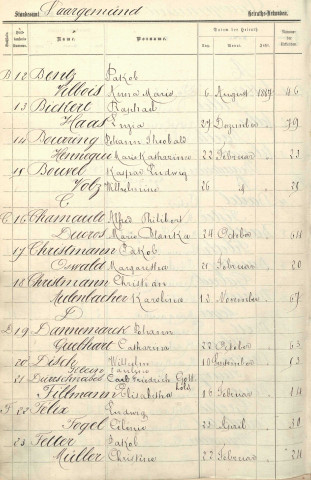 Standesamt: Saargemünd Heiraths-Urkunden.
Name. Vorname. Datum der Heirath Nummer der Urkunden.
Tag. Monat. Jahr.
B 12 Bentz Jakob
Velveis Anna Maria 6 August 1887 46
13 Bickert Raphael
Haas Luzia 27 Dezember 79
14 Bouring Johann Theobald
Hennequi Marie Katharina 22 Februar 23
15 Bouvel Kaspar Ludwig
Volz Wilhelmine 26 " 28
C
C 16 Chamaulte Alfred Philibert
Duros Marie Blanka 24 October 64
17 Christmann Jakob
Oswald Margaretha 21 Februar 20
18 Christmann Christian
Mulenbacher Karolina 12 November 67
D
D 19 Dannemarck Johann
Guelhart Catharina 22 October 63
20 Disch Wilhelm
Karoline 10 September 53
21 Dieuschnabel Carl Friedrich Gotthold
Tillmann Elisabetha 18 Februar 14
F 22 Felix Ludwig
Fogel Edonie 23 April 30
23 Fetter Jakob
Müller Christine 22 Februar 24